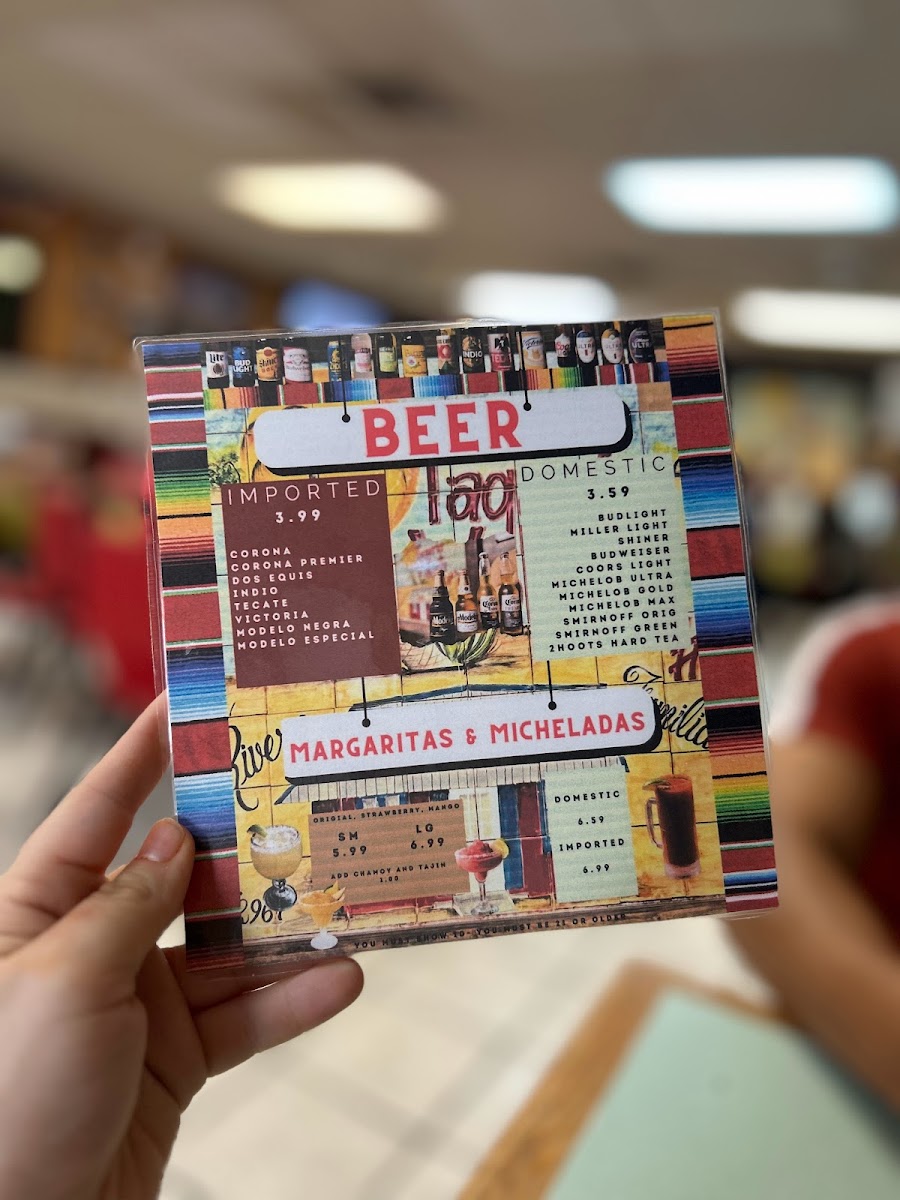 BEER
IMPORTED
3.99
CORONA
CORONA PREMIER
DOS EQUIS
INDIO
TECATE
VICTORIA
MODELO NEGRA
MODELO ESPECIAL
Taq
DOMESTIC
3.59
BUDLIGHT
MILLER LIGHT
SHINER
BUDWEISER
COORS LIGHT
MICHELOB ULTRA
MICHELOB GOLD
MICHELOB MAX
SMIRNOFF ORIG
SMIRNOFF GREEN
2HOOTS HARD TEA
MARGARITAS & MICHELADAS
ORIGIAL, STRAWBERRY, MANGO
SM
5.99
LG
6.99
ADD CHAMOY AND TAJIN
1.00
DOMESTIC
6.59
IMPORTED
6.99
YOU MUST SHOW ID- YOU MUST BE 21 OR OLDER